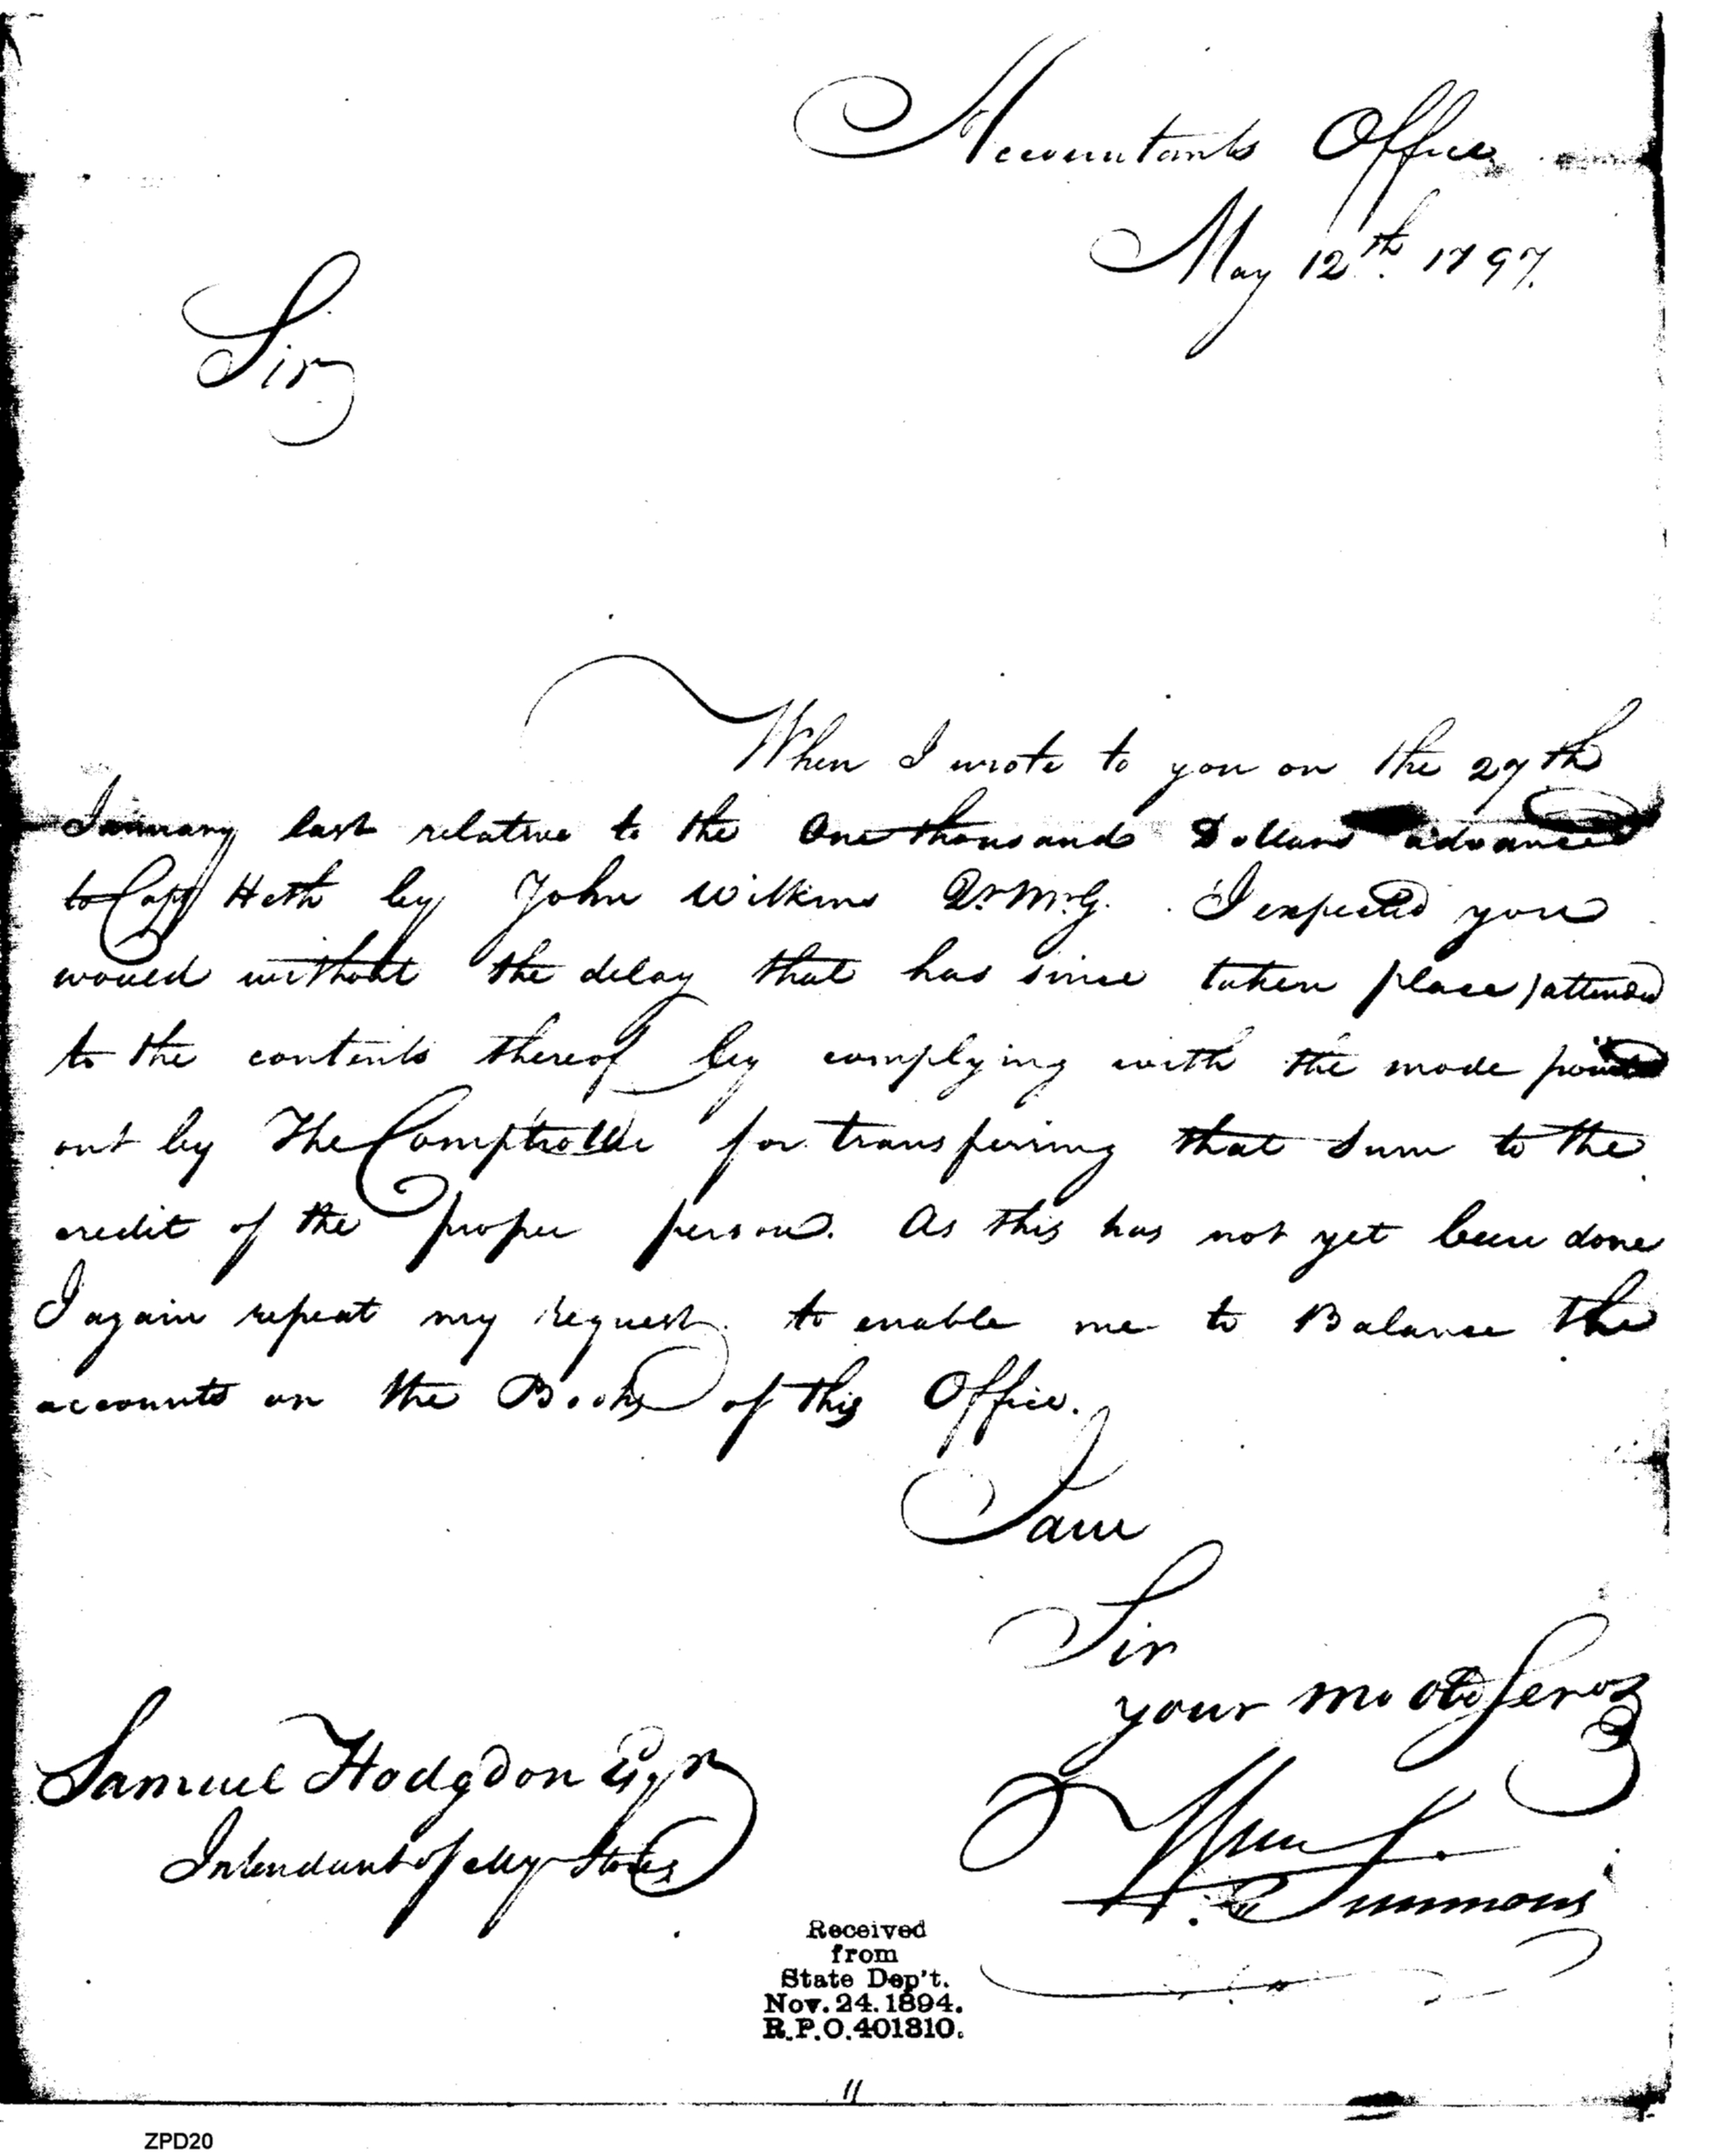 Accountants Office
May 12th. 1797.
Sir
When I wrote to you on the 27th
January last relative to the One thousand Dollars advanced
to Capt Heth by John Wilkins Qr. Mr. G. I expected you
would without the delay that has since taken place, attended
to the contents thereof by complying with the mode pointed
out by The Comptroller for transferring that sum to the
credit of the proper person. As this has not yet been done
I again repeat my request to enable me to Balance the
accounts on the Books of this Office.
I am
Sir
your mo obd Servt
Wm Simmons
Samuel Hodgdon Esqr
Intendant of My Stores
Received
from
State Dep't.
Nov. 24. 1894.
R.P.O. 401810.
11
ZPD20